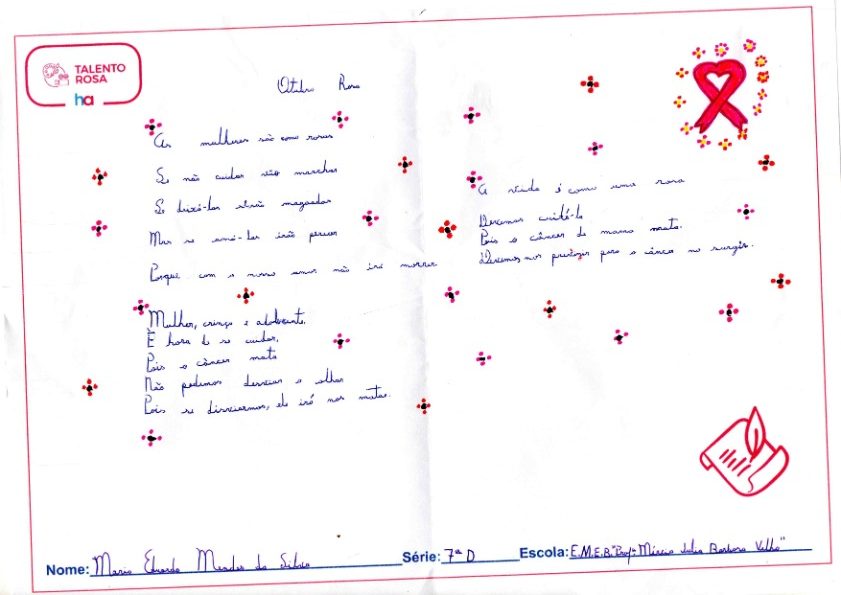 TALENTO
ROSA
ha
Outubro Rosa
As mulheres são como rosas
Se não cuidar vão murchar
Se deixá-las serão magoadas
Mas se amá-las irão
Porque com o nosso amor não irá morrer
Mulher, criança e adolescente,
É hora de se cuidar,
Pois o câncer mata
Não podemos desviar o olhar
Pois se desviarmos, ele irá nos matar.
A vida é como uma rosa
Devemos cuidá-la
Pois o câncer de mama mata.
Devemos nos para o câncer no surgir.
Nome: Maria Eduarda Mendes da Silva
Série: 7ª D
Escola: E.M.E.B. "Profª Márcia Julia Barbosa Velho"